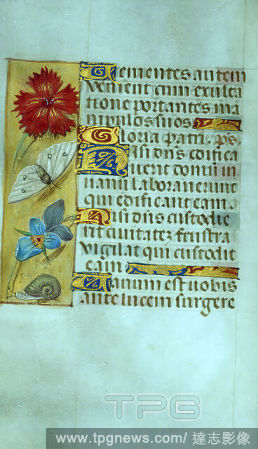 Uenientes autem
uenient cum exulta
tione portantes ma
nipulos suos
Gloria patri. ps.
Nisi dñs edifica
uerit domū in
uanū laborauerunt
qui edificant eam.
Nisi dñs custodie
rit ciuitatē frustra
uigilat qui custodit
eam
Uanum est uobis
ante lucem surgere
TPG
www.tpgnews.com/ 達志影像